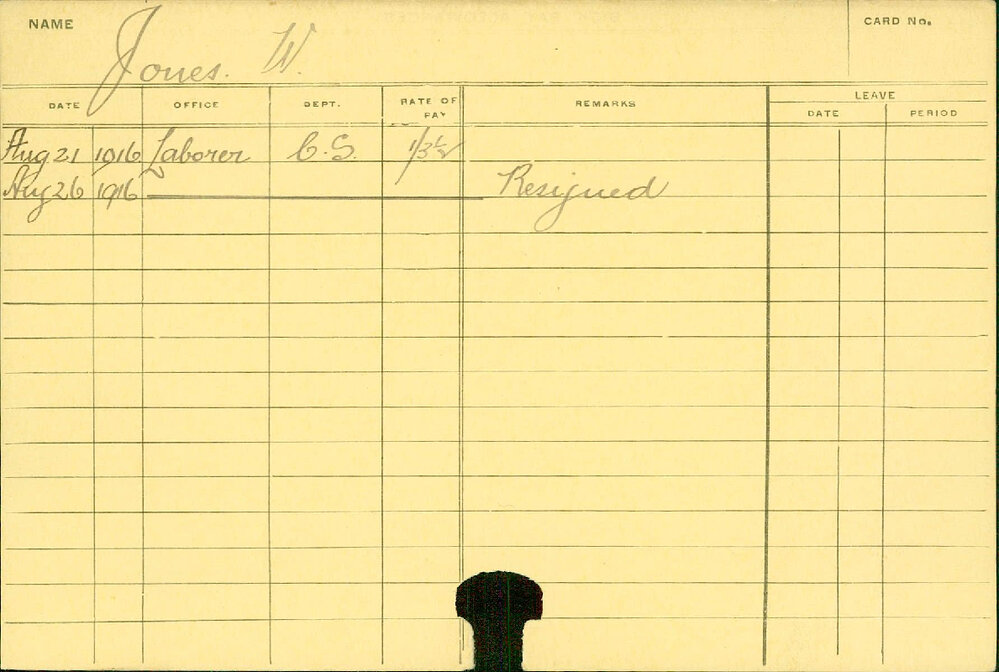 NAME Jones. W. CARD No.
DATE OFFICE DEPT. RATE OF PAY REMARKS LEAVE
DATE PERIOD
Aug 21 1916 Laborer C.S. 1/3½
Aug 26 1916 Resigned